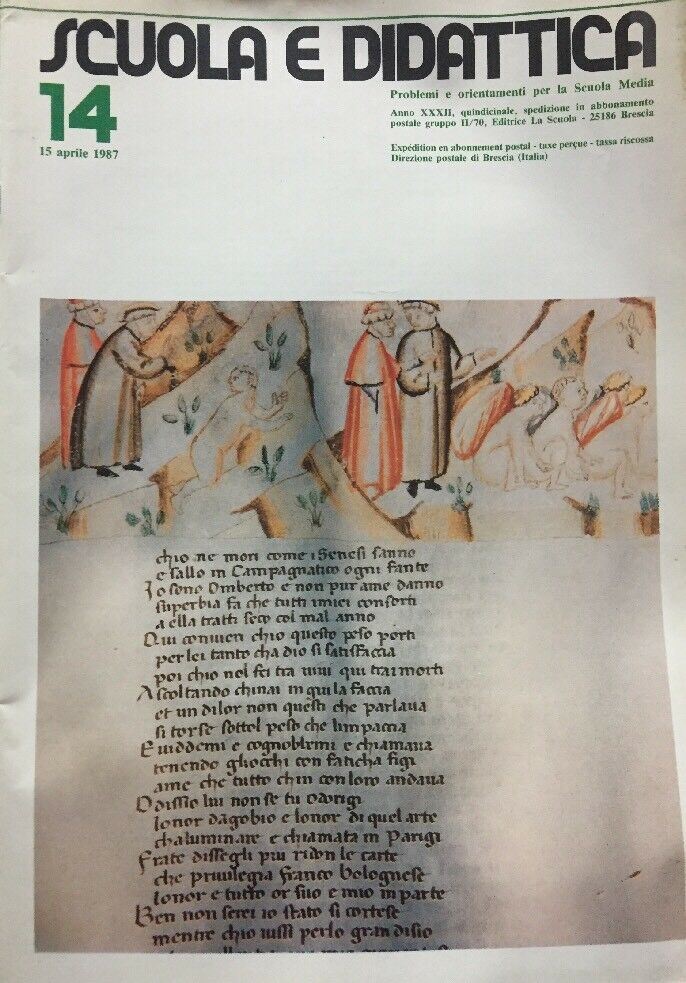 SCUOLA E DIDATTICA
14
15 aprile 1987
Problemi e orientamenti per la Scuola Media
Anno XXXII, quindicinale, spedizione in abbonamento
postale gruppo II/70, Editrice La Scuola - 25186 Brescia
Expédition en abonnement postal - taxe perçue - tassa riscossa
Direzione postale di Brescia (Italia)
chio ne mori come i Senesi sanno
e sallo in Campagnatico ogni fante
Io sono Omberto e non pur ame danno
superbia fa che tutti imiei consorti
a ella tratti seco col mal anno
Qui convien chio questo peso porti
per lei tanto cha dio si satisfaccia
poi chio nol fei tra vivi qui trai morti
Ascoltando chinai in giu la faccia
et un dilor non questi che parlava
si torse sottol peso che limpaccia
E viddemi e cognobbemi e chiamava
tenendo gliocchi con faticha figi
ame che tutto chin con loro andava
O dissio lui non se tu Odorigi
lonor dagobio e lonor di quel arte
chaluminare e chiamata in Parigi
Frate dissegli piu ridon le carte
che Franco bolognese
lonor e tutto or suo e mio in parte
Ben non serei io stato si cortese
mentre chio vissi per lo gran disio